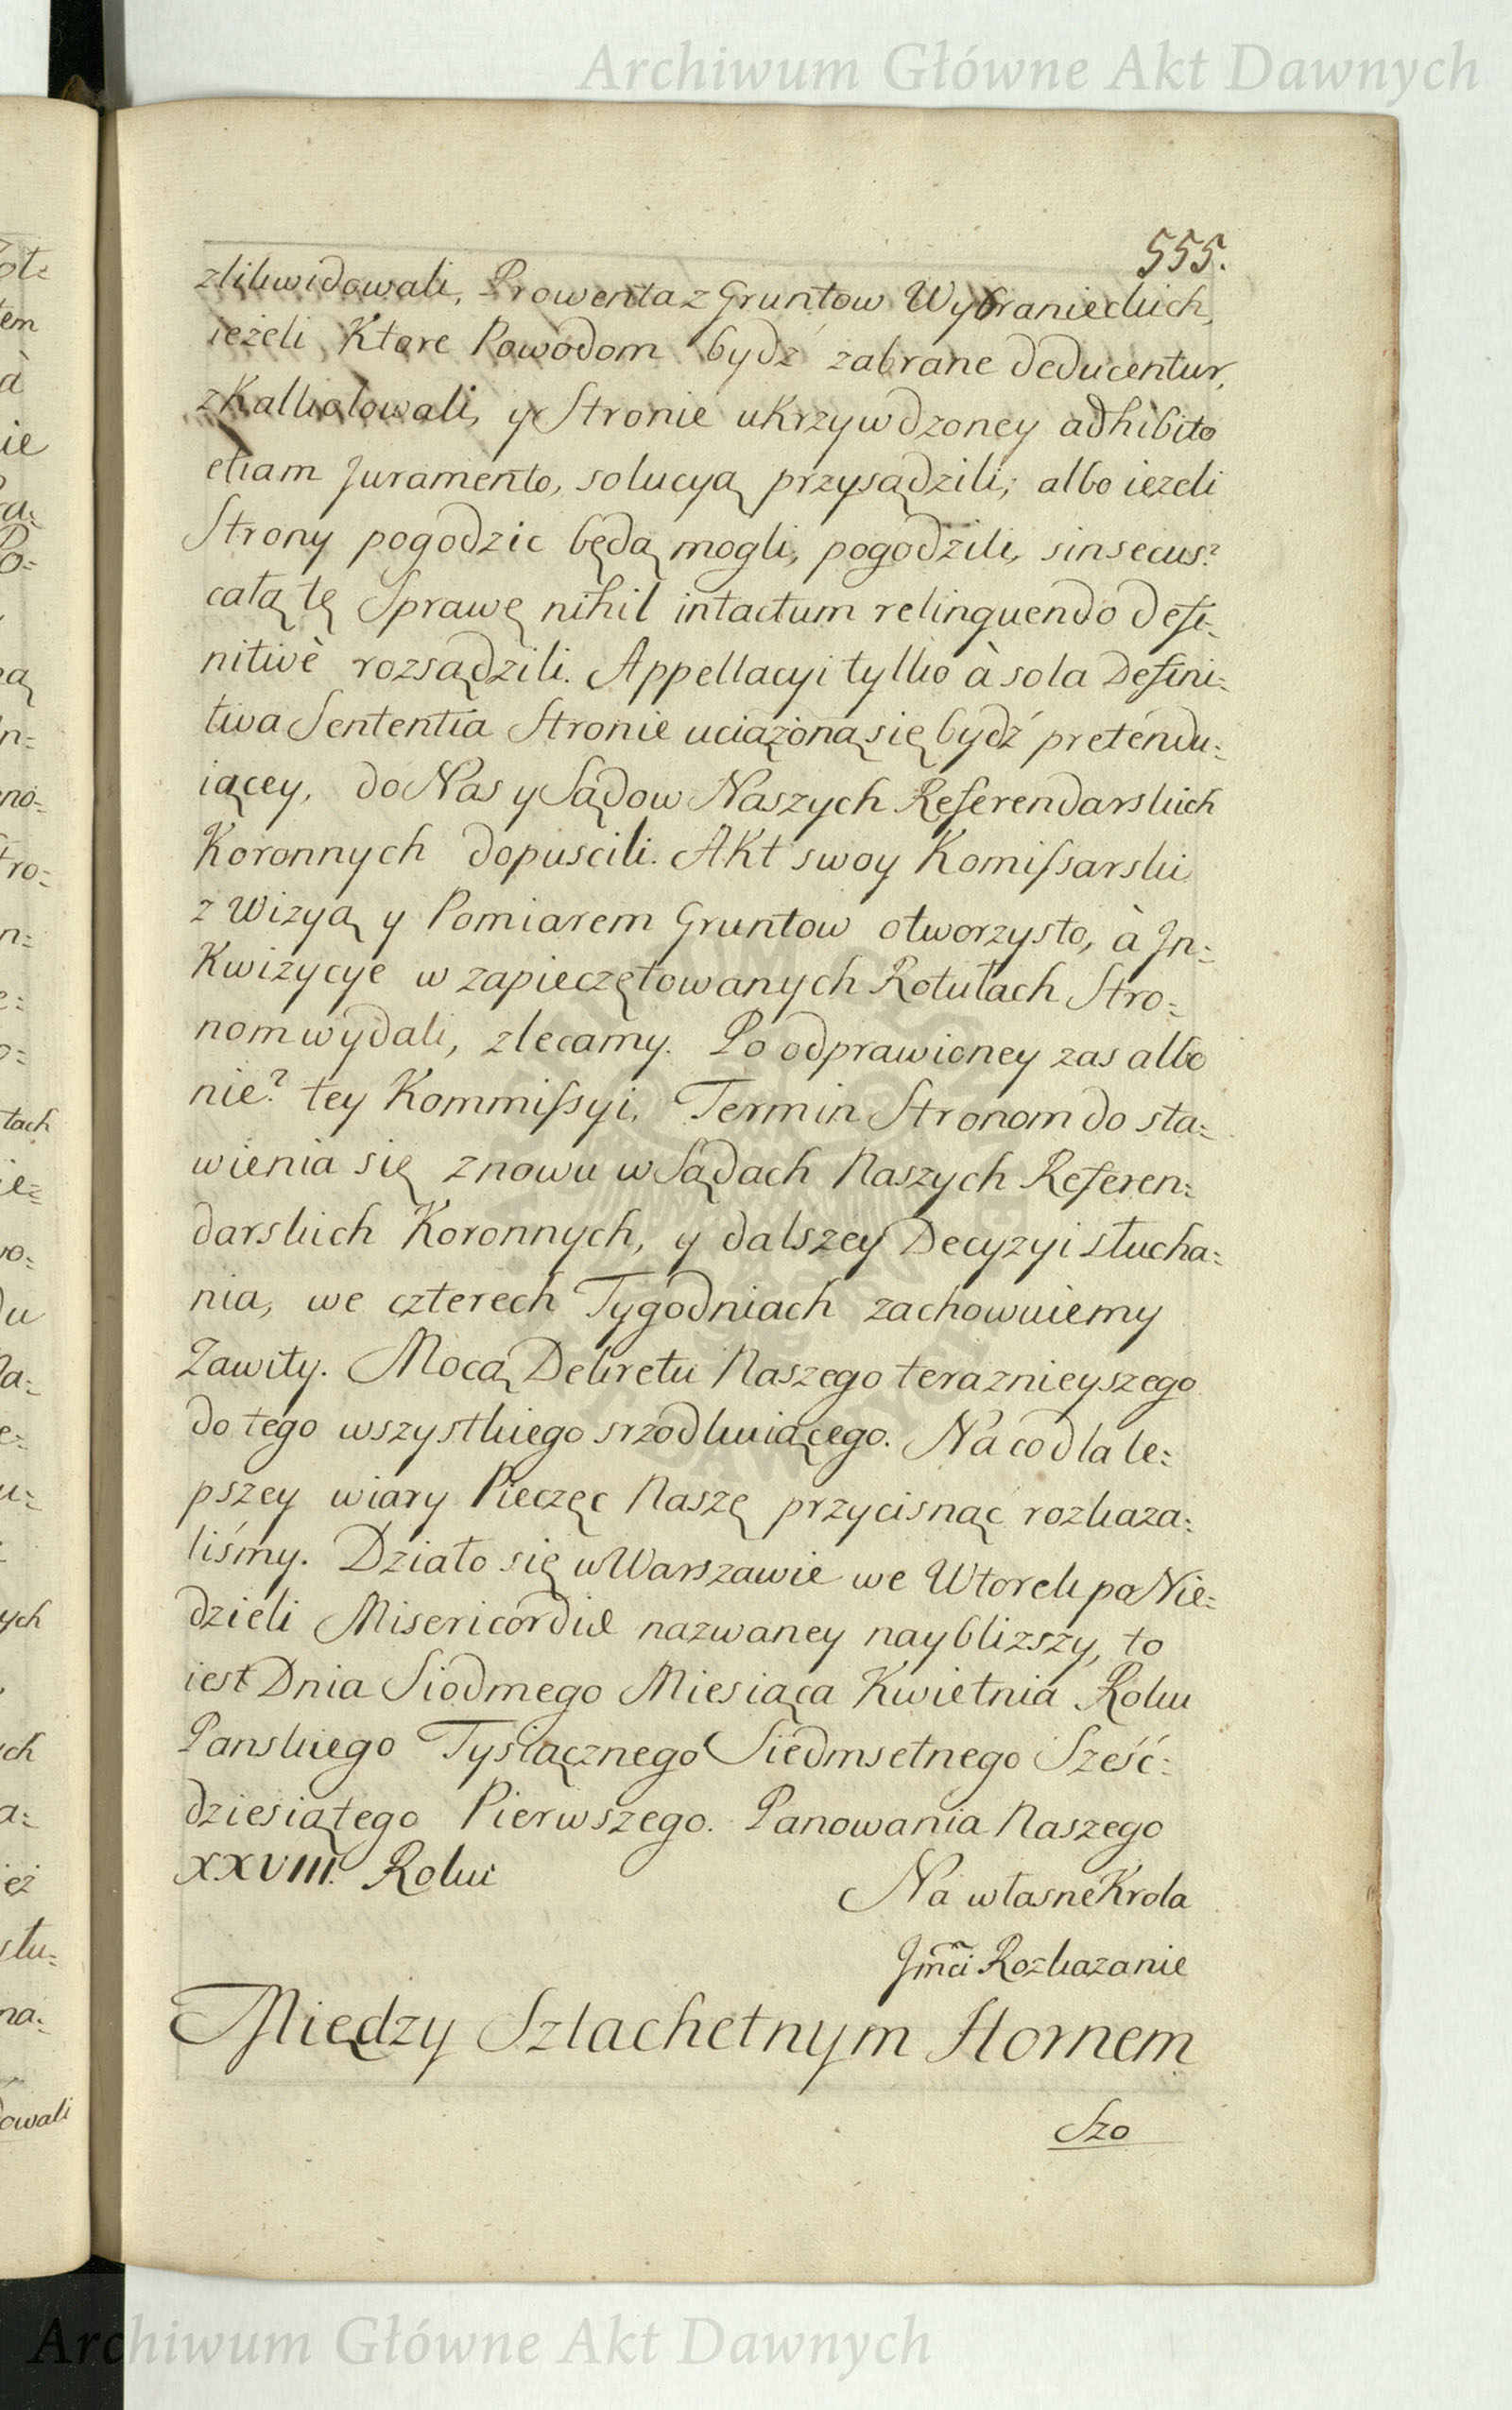 Archiwum Główne Akt Dawnych
555.
zlikwidowali, Prowenta z Gruntow Wybranieckich,
ieżeli Ktore Powodom bydź zabrane deducentur,
zKalkolowali, y Stronie uKrzywdzoney adhibito
etiam Juramento, solucyą przysądzili; albo iezeli
Strony pogodzic będą mogli, pogodzili, sinsecus?
całą tę Sprawę nihil intactum relinquendo defi=
nitivè rozsądzili. Appellacyi tylko à sola Defini=
tiva Sententia Stronie uciążoną się bydź pretendu=
iącey, do Nas y Sądow Naszych Referendarskich
Koronnych dopuscili. AKt swoy Komissarski
z Wizyą y Pomiarem Gruntow otworzysto, à In=
Kwizycye w zapieczętowanych Rotułach Stro=
nom wydali, zlecamy. Po odprawioney zas albo
nie? tey Kommissyi, Termin Stronom do sta=
wienia się znowu w Sądach Naszych Referen=
darskich Koronnych, y dalszey Decyzyi słucha=
nia, we czterech Tygodniach zachowuiemy
Zawity. Mocą Dekretu Naszego teraznieyszego
do tego wszystkiego srzodkuiącego. Na co dla le=
pszey wiary Pieczęc Naszę przycisnąć rozkaza=
liśmy. Działo się w Warszawie we Wtorek po Nie=
dzieli Misericordiæ nazwaney nayblizszy, to
iest Dnia Siodmego Miesiąca Kwietnia Roku
Panskiego Tysiącznego Siedmsetnego Sześć=
dziesiątego Pierwszego. Panowania Naszego
XXVIII. Roku
Na własne Krola
Jmci Rozkazanie
Między Szlachetnym Hornem
Szo
Archiwum Główne Akt Dawnych